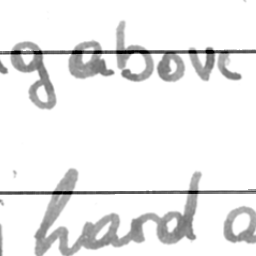 g above
hard a